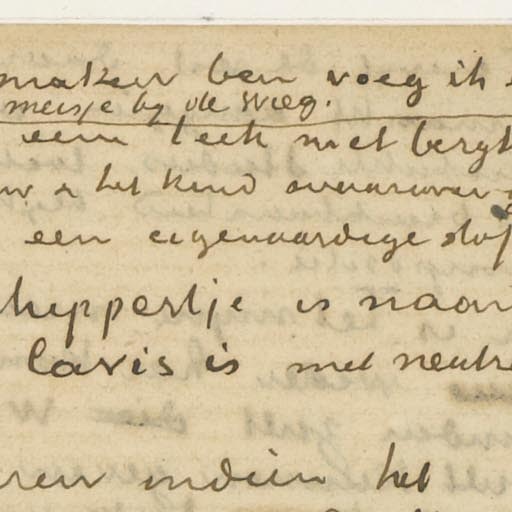 maken ben voeg ik
meisje by de wieg.
een teek met bergk
w & het kind
een eigenaardige stof
hippertje is naar
lavis is met neutr
ren indien het